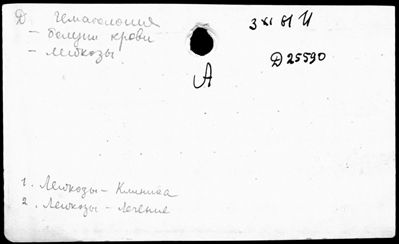 Д Гематология
- болезни крови
- лейкозы
3 XI 81 И
Д 25590
А
1. Лейкозы - Клиника
2. Лейкозы - лечение